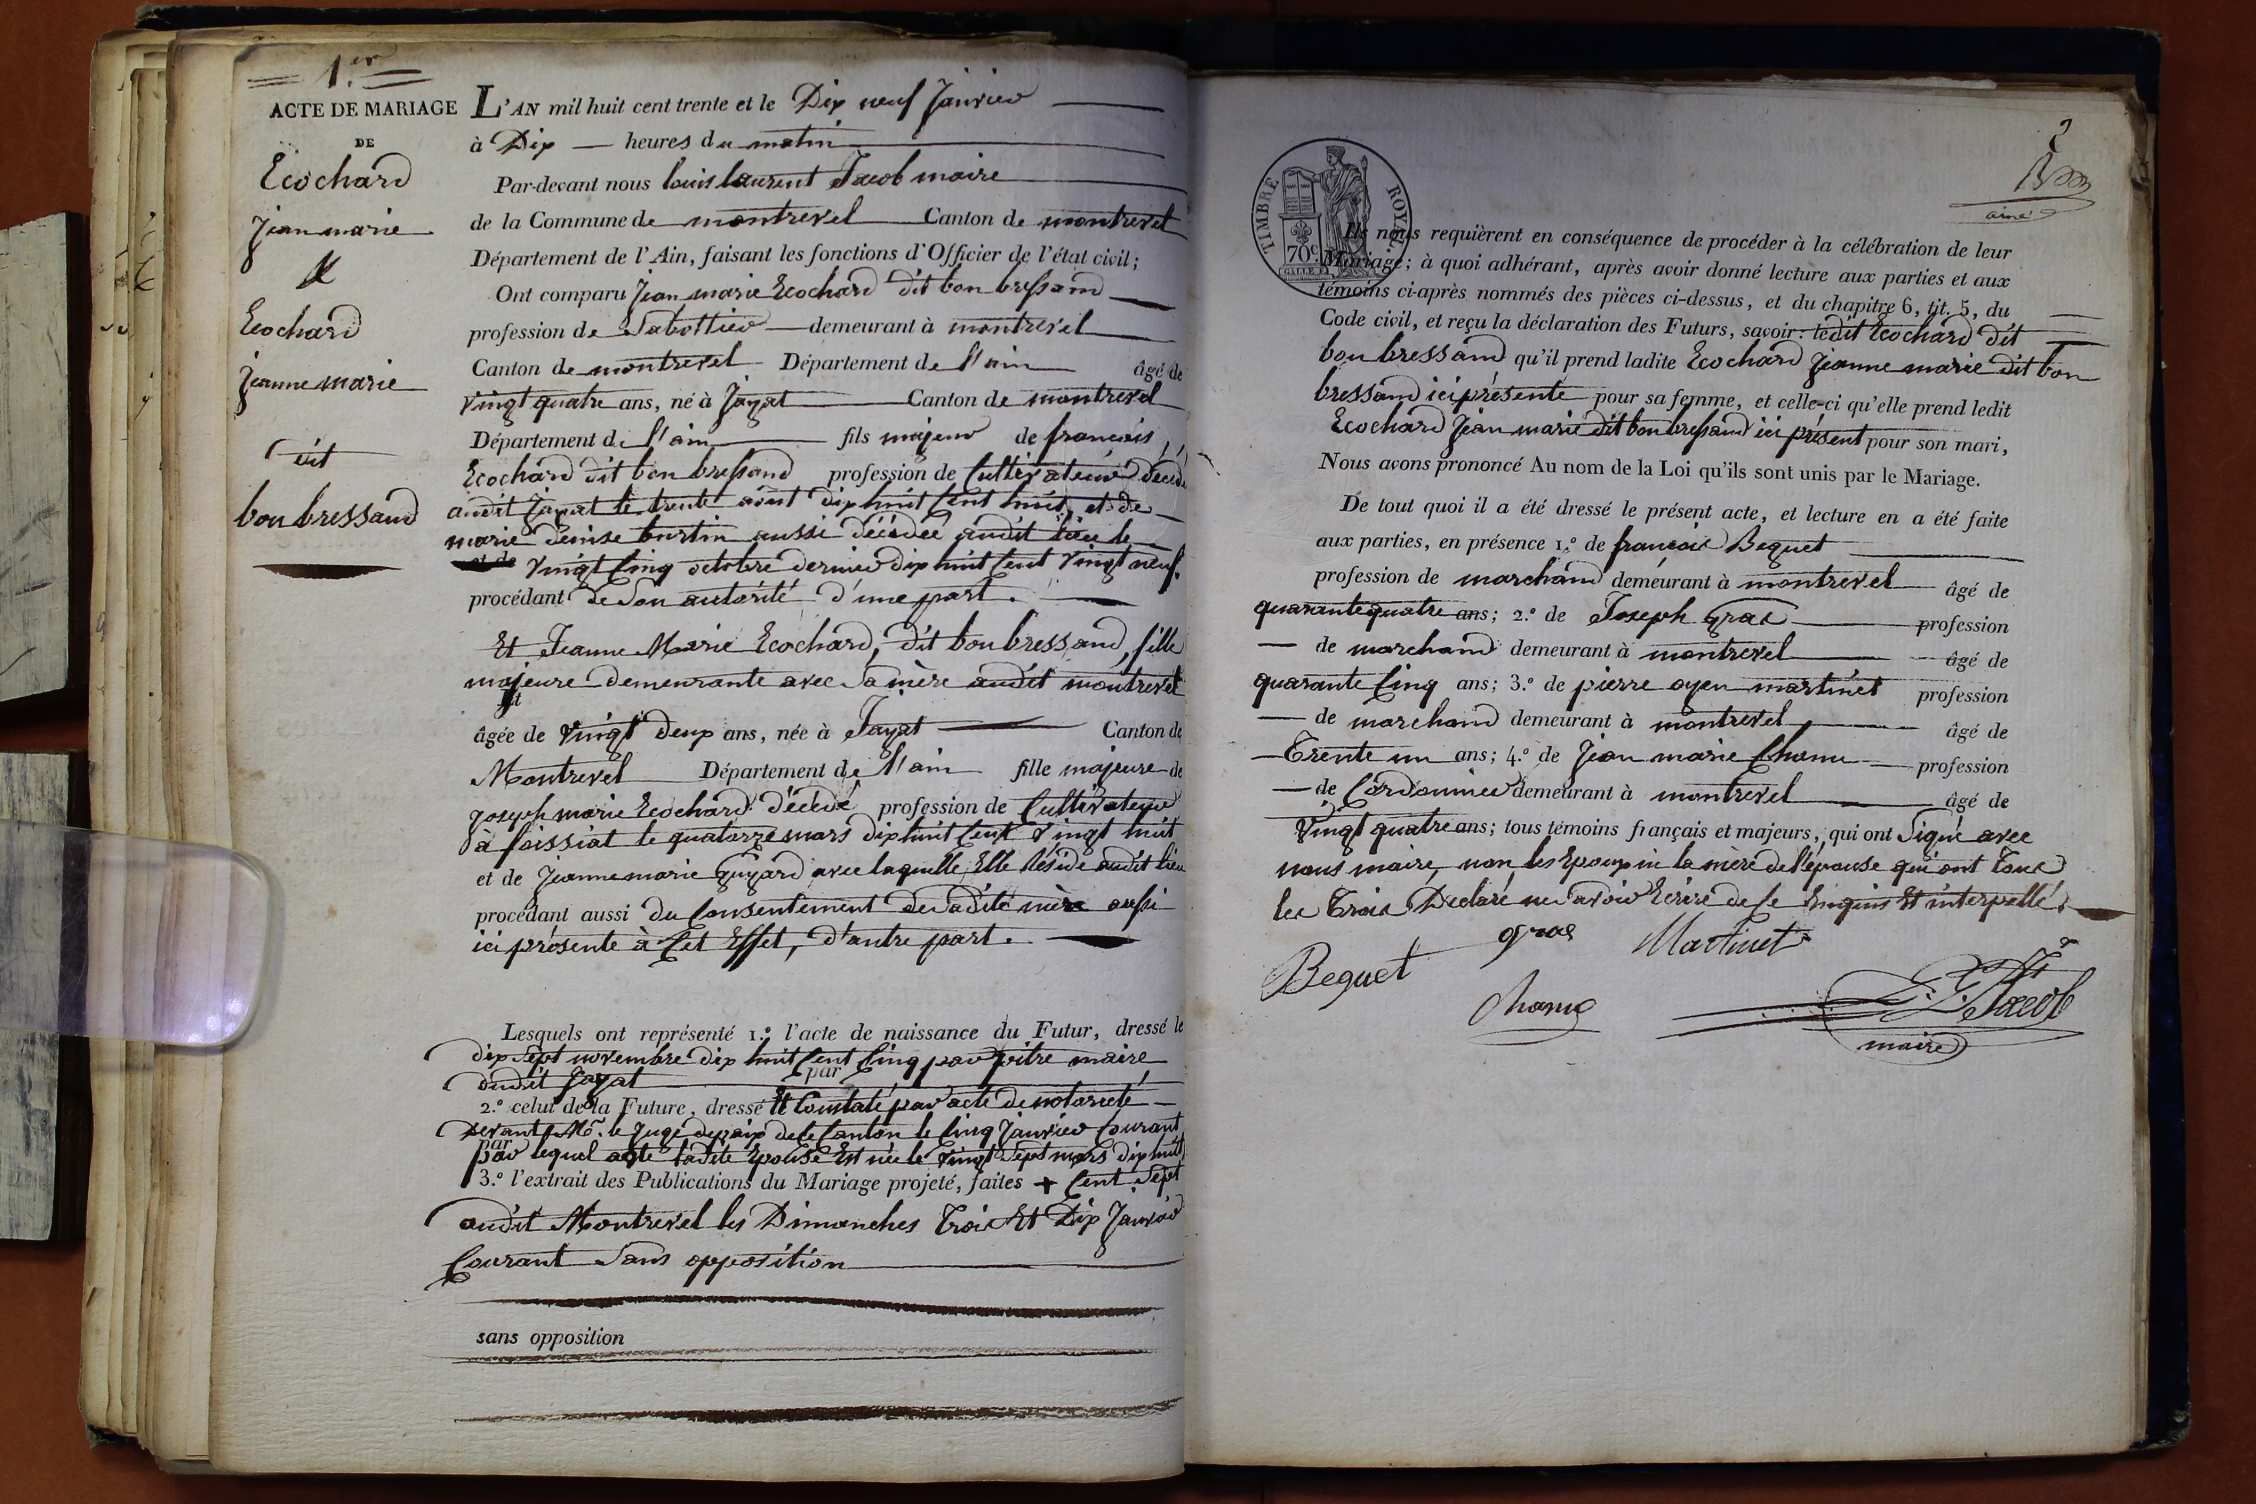 1.er
ACTE DE MARIAGE
DE
Ecochard
Jean marie
&
Ecochard
Jeanne marie
dit
bon bressand
L'AN mil huit cent trente et le Dix neuf Janvier
à Dix heures du matin
Par-devant nous louis laurent Jacob maire
de la Commune de montrevel Canton de montrevel
Département de l'Ain, faisant les fonctions d'Officier de l'état civil;
Ont comparu Jean marie Ecochard dit bon bressand
profession de Sabottier demeurant à montrevel
Canton de montrevel Département de l'ain âgé de
vingt quatre ans, né à Jayat Canton de montrevel
Département de l'ain fils majeur de francois
Ecochard dit bon bressand profession de Cultivateur décédé
audit Jayat le trente août dix huit Cent huit, et de
marie denise burtin aussi décédée audit lieu le
vingt Cinq octobre dernier dix huit Cent vingt neuf.
procédant de Son autorité d'une part.
Et Jeanne Marie Ecochard, dit bon bressand, fille
majeure demeurante avec Sa mère audit montrevel
âgée de vingt deux ans, née à Jayat Canton de
Montrevel Département de l'ain fille majeure de
joseph marie Ecochard décédé profession de Cultivateur
à foissiat le quatorze mars dix huit Cent vingt huit
et de Jeanne marie Guyard avec laquelle Elle Réside audit lieu
procédant aussi du Consentement de Sadite mère aussi
ici présente à Cet Effet, d'autre part.
Lesquels ont représenté 1.º l'acte de naissance du Futur, dressé le
dix Sept novembre dix huit Cent Cinq par pitre maire
dudit Jayat
par
2.º celui de la Future, dressé et Constaté par acte de notorieté
devant Mr. le Juge de paix de Ce Canton le Cinq Janvier Courant
par
par lequel acte ladite Epouse Est née le vingt Sept mars dix huit
3.º l'extrait des Publications du Mariage projeté, faites + Cent Sept
audit Montrevel les Dimanches Trois Et Dix Janvier
Courant Sans opposition
sans opposition
2
TIMBRE ROYAL
70c
Ils nous requièrent en conséquence de procéder à la célébration de leur
Mariage; à quoi adhérant, après avoir donné lecture aux parties et aux
témoins ci-après nommés des pièces ci-dessus, et du chapitre 6, tit. 5, du
Code civil, et reçu la déclaration des Futurs, savoir: ledit Ecochard dit
bon bressand qu'il prend ladite Ecochard Jeanne marie dit bon
bressand ici présente pour sa femme, et celle-ci qu'elle prend ledit
Ecochard Jean marie dit bon bressand ici présent pour son mari,
Nous avons prononcé Au nom de la Loi qu'ils sont unis par le Mariage.
De tout quoi il a été dressé le présent acte, et lecture en a été faite
aux parties, en présence 1.º de francois Beguet
profession de marchand demeurant à montrevel âgé de
quarante quatre ans; 2.º de Joseph Gras profession
de marchand demeurant à montrevel âgé de
quarante Cinq ans; 3.º de pierre oyen martinet profession
de marchand demeurant à montrevel âgé de
Trente un ans; 4.º de Jean marie Chanu profession
de Cordonnier demeurant à montrevel âgé de
Vingt quatre ans; tous témoins français et majeurs, qui ont Signé avec
nous maire, non les Epoux ni la mère de l'épouse qui ont Tous
les Trois Declaré ne Savoir Ecrire de Ce Enquis Et interpellé.
Beguet
gras
Martinet
Chanu
L. L. Jacob
maire